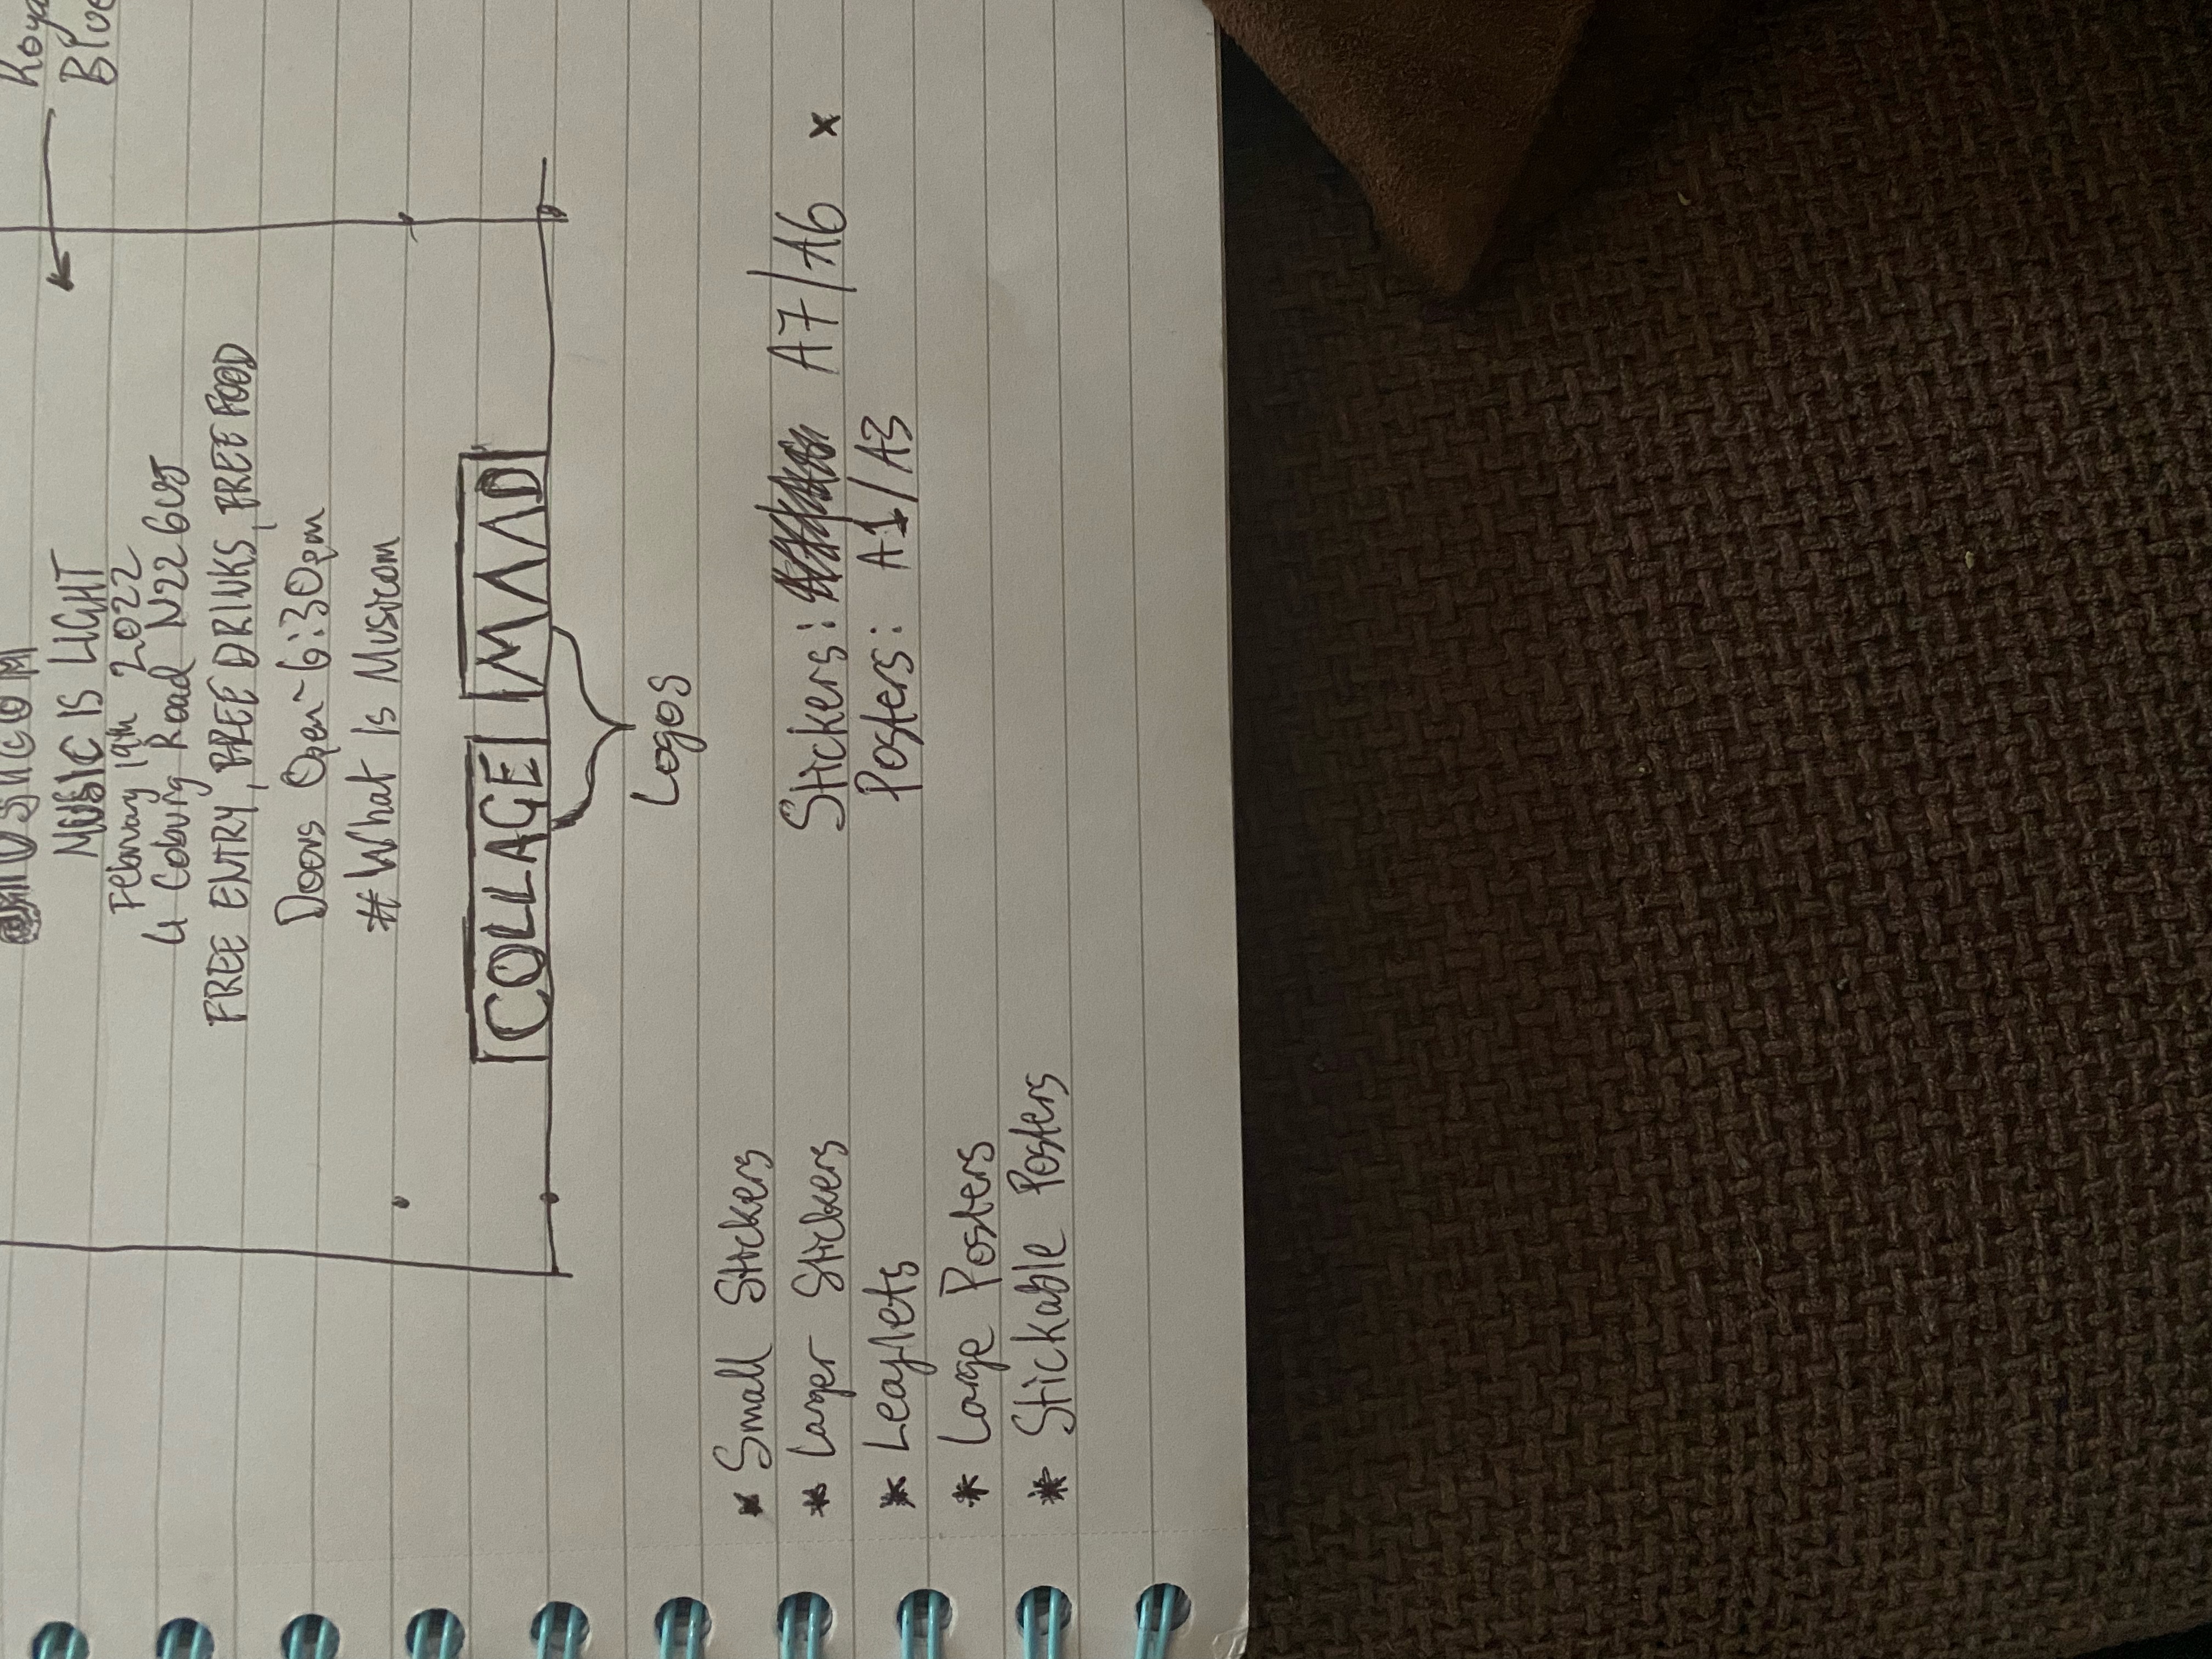 MUSICOM
Blue
MUSIC IS LIGHT
February 19th 2022
4 Coburg Road N22 6UJ
FREE ENTRY, FREE DRINKS, FREE FOOD
Doors Open ~ 6:30pm
# What Is Musicom
COLLAGE MAAD
Logos
* Small Stickers
* Larger Stickers
* Leaflets
* Large Posters
* Stickable Posters
Stickers: A7/A6 x
Posters: A1/A3